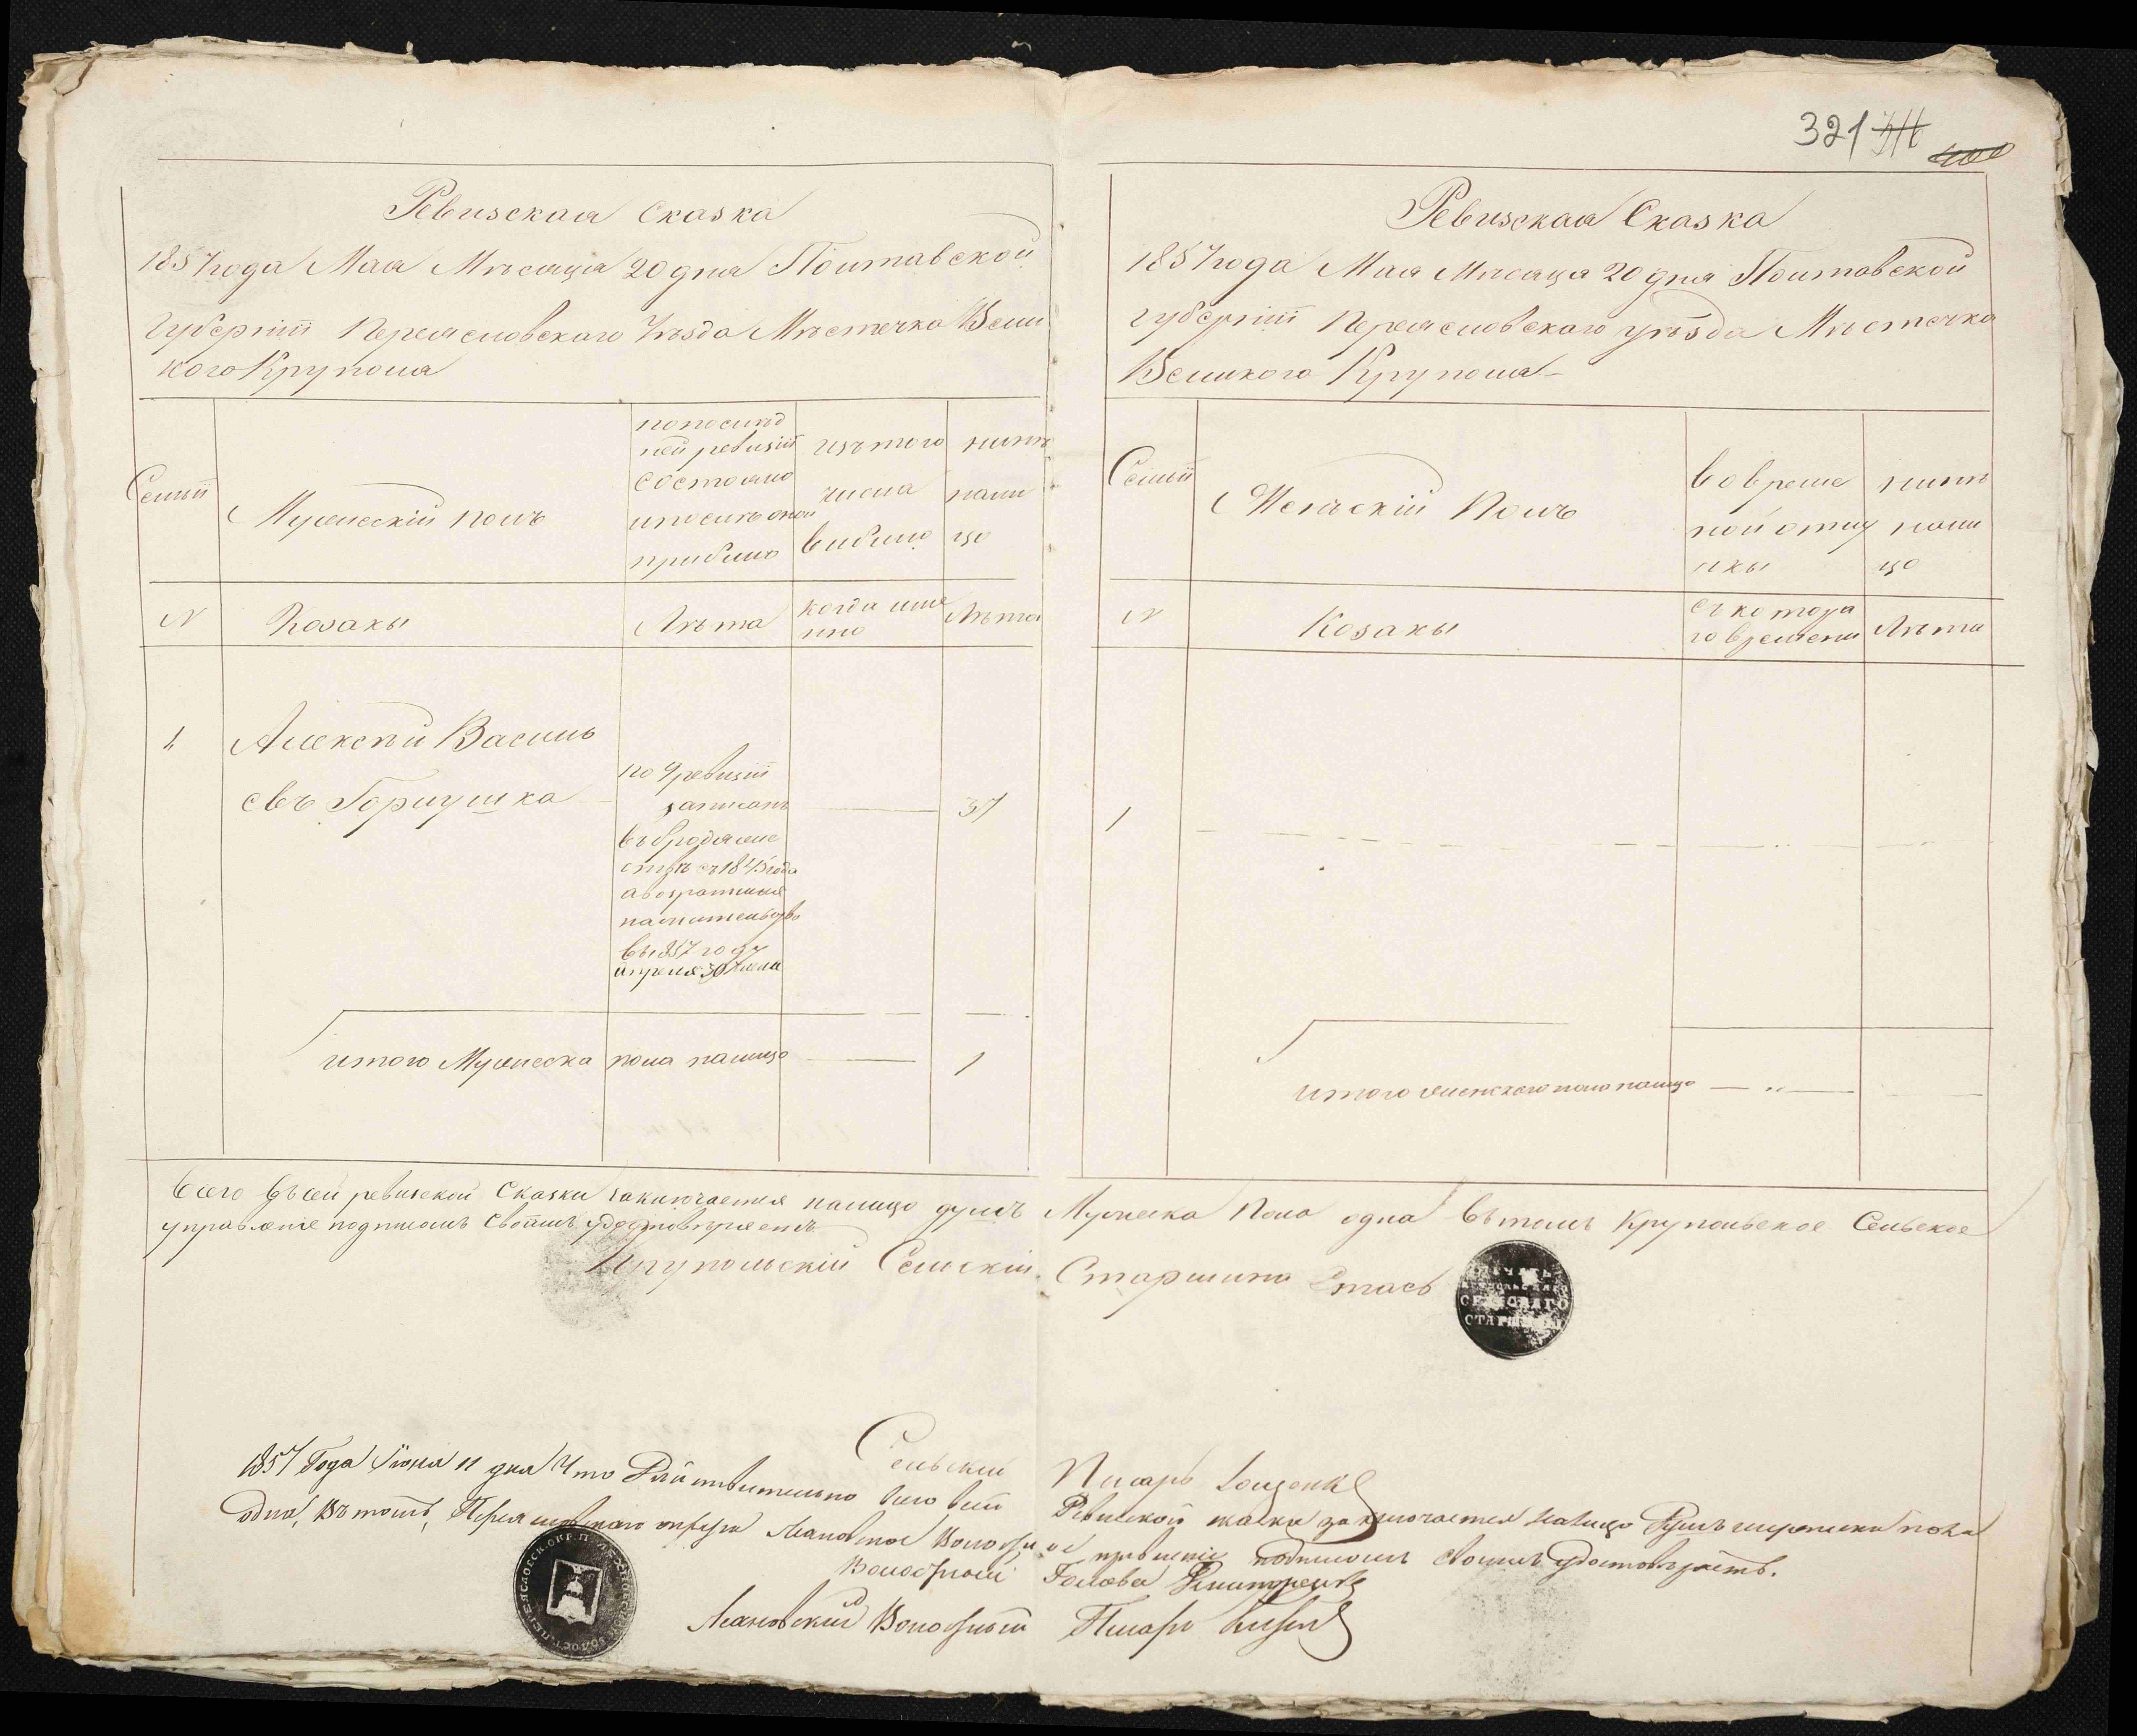 321
400
Ревизская Сказка
1857 года Мая Мѣсяца 20 дня Полтавской
Губернiи Переясловскаго Уѣзда Мѣстечка Вели
кого Крупола
Семьи
Мужескiй полъ
попослѣд
ней ревизiи
состояло
ипослѣ оной
прибыло
изътого
числа
выбыло
нынѣ
нали
цо
N
Козаки
Лѣта
когда име
нно
Лѣта
1
Алексѣй Василь
евъ Горкушка
по 9 ревизiи
записанъ
въбродяже
ствѣ съ 1845 года
авозратился
нажительство
въ1857 году
апреля 30 числа
37
итого Мужеска пола налицо 1
Ревизская Сказка
1857 года Мая Мѣсяца 20 дня Полтавской
губернiи Переясловскаго уѣзда Мѣстечка
Великого Крупола
Семьи
Женскiй Полъ
вовреме
ной отлу
чкы
нынѣ
нали
цо
N
Козакы
съ котора
го времени
Лѣта
1
итого женскаго пола налицо
Всего Въсей ревизской Сказки заключается налицо душъ Мужеска Пола одна Вътомъ Крупольское Сельское
управленiе подписомъ своимъ удостовѣряетъ
Крупольскiй Сельскiй Старшина
ПЕЧАТЬ
СЕЛЬСКАГО
СТАРШИНЫ
Сельский Писарь
1857 Года Iюня 11 дня Что Дѣйствительно всего всей Ревизской сказки заключается налицо Душъ мужеска пола
одна, Въ томъ, Переясловскаго округа Волостное правленiе подписомъ своимъ удостовѣряетъ.
Волостной Голова
Волостный Писарь